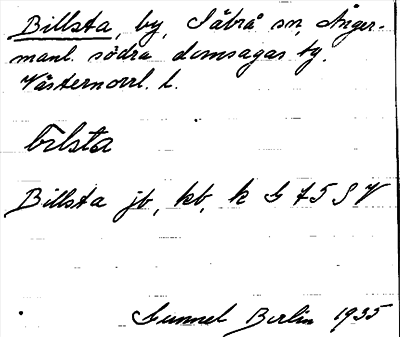 Billsta, by, Säbrå sn, Ånger-
manl. södra domsagas tg.
Västernorrl. l.
bilsta
Billsta jb, kb, k G 75 SV
Gunnel Berlin 1935